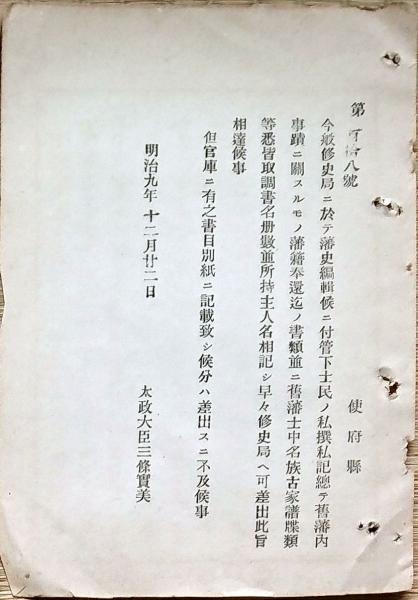 第百拾八號
使府縣
今般修史局ニ於テ藩史編輯候ニ付管下士民ノ私撰私記總テ舊藩内
事蹟ニ關スルモノ藩籍奉還迄ノ書類並ニ舊藩士中名族古家譜牒類
等悉皆取調書名册數並所持主人名相記シ早々修史局ヘ可差出此旨
相達候事
但官庫ニ有之書目別紙ニ記載致シ候分ハ差出スニ不及候事
明治九年十二月廿二日
太政大臣三條實美